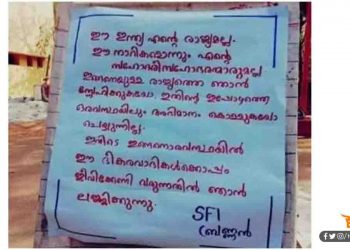 ഈ ഇന്ത്യ എന്റെ രാജ്യമല്ല.
ഈ നാറികളൊന്നും എന്റെ
സഹോദരീസഹോദരന്മാരുമല്ല
ഇങ്ങനെയുള്ള രാജ്യത്തെ ഞാൻ
സ്നേഹിക്കുകയോ ഇതിന്റെ ഇപ്പോഴത്തെ
അവസ്ഥയിലും അഭിമാനം കൊള്ളുകയോ
ചെയ്യുന്നില്ല.
ഇങ്ങനൊരവസ്ഥയിൽ
ഈ ഭീകരവാദികൾക്കൊപ്പം
ജീവിക്കേണ്ടി വരുന്നതിൽ ഞാൻ
ലജ്ജിക്കുന്നു.
SFI
ബ്രണ്ണൻ